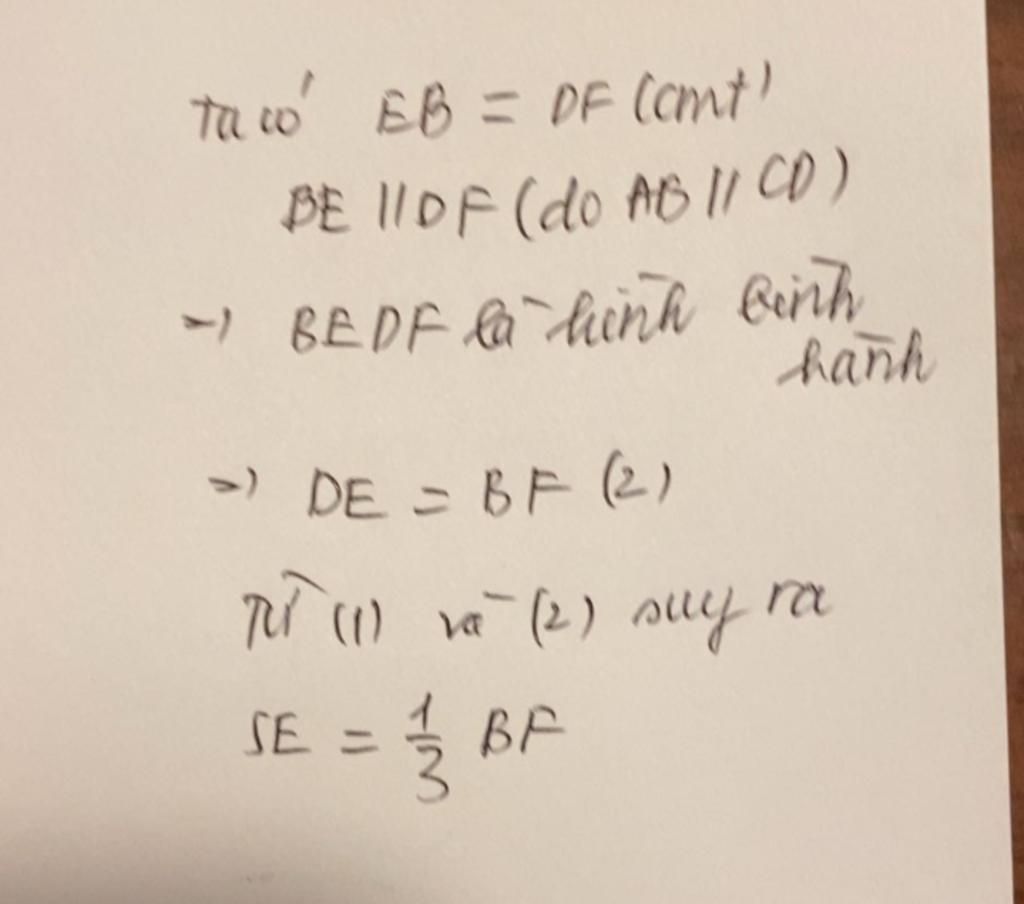 Ta có EB = DF (cmt)
BE // DF (do AB // CD)
=> BEDF là hình bình
hành
=> DE = BF (2)
Từ (1) và (2) suy ra
SE = 1/3 BF